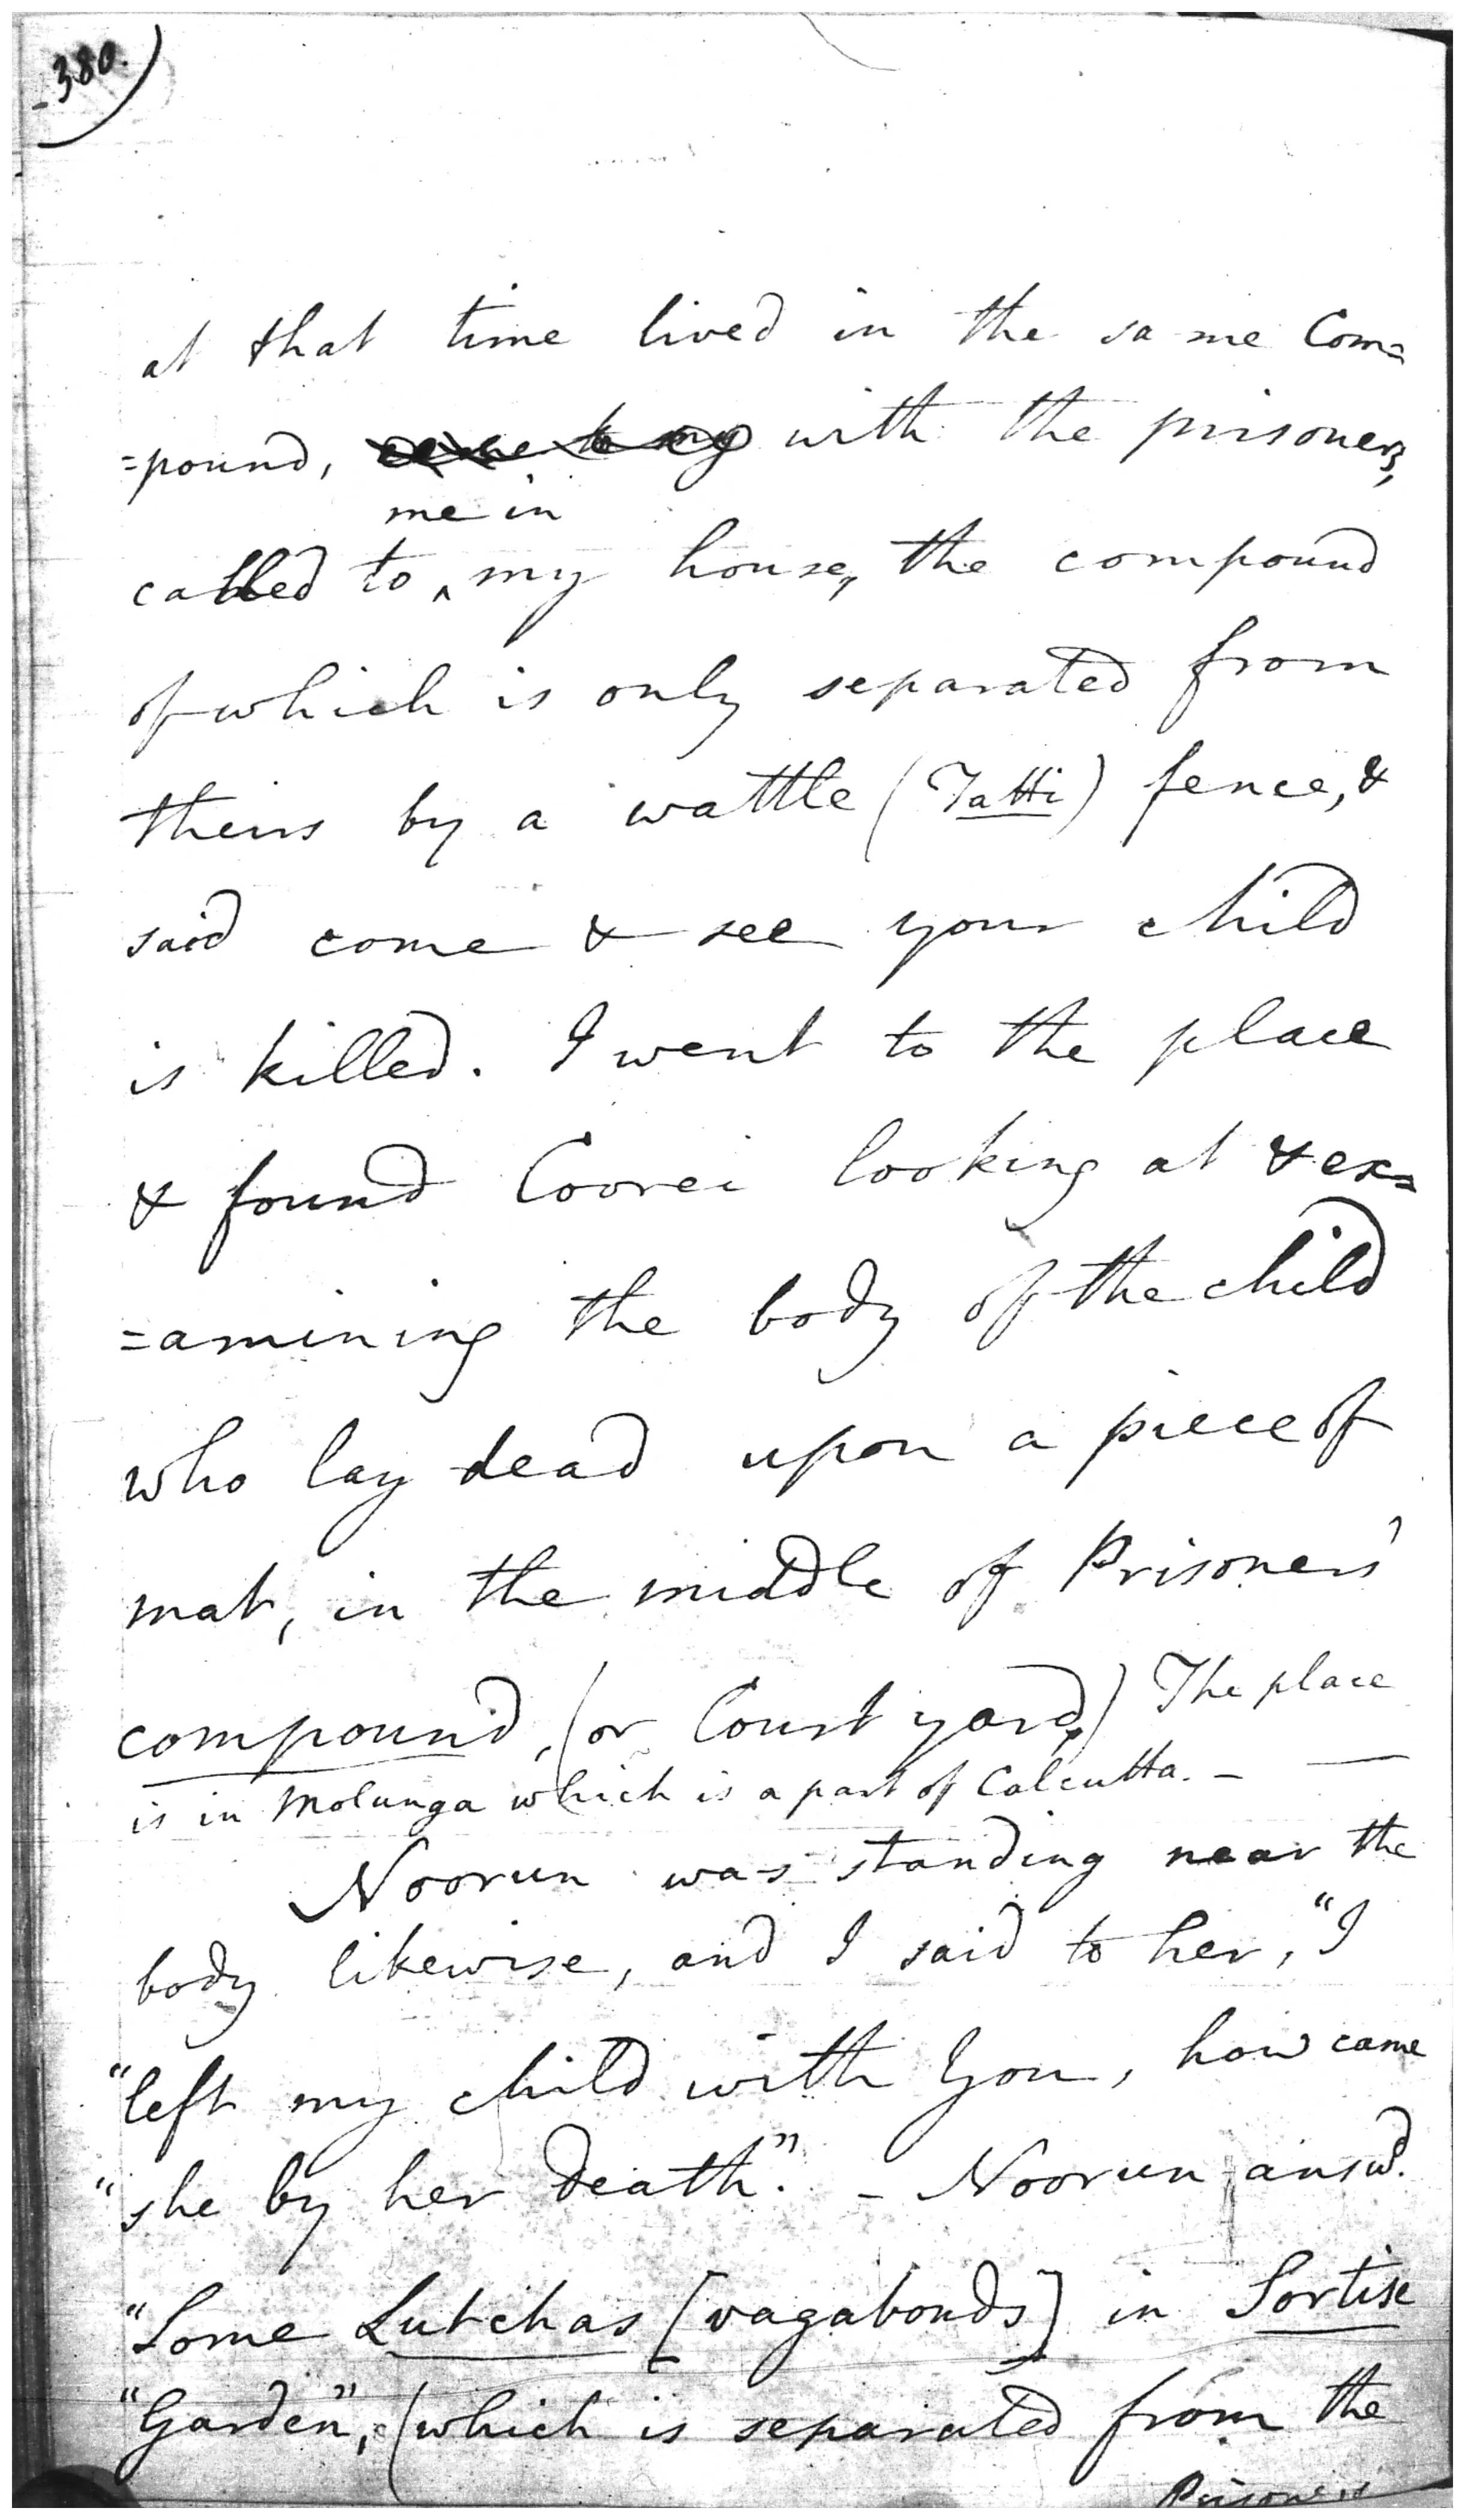 380.
at that time lived in the same Com=
=pound, came to my with the prisoners,
me in
called to ^ my house, the compound
of which is only separated from
theirs by a wattle (Tatti) fence, &
said come & see your child
is killed. I went to the place
& found Coorei looking at & ex=
=amining the body of the child
who lay dead upon a piece of
mat, in the middle of Prisoners'
compound, (or Court yard.) The place
is in Molunga which is a part of Calcutta. –
Noorun was standing near the
body likewise, and I said to her, "I
"left my child with You, how came
"she by her death". – Noorun answd.
"Some Lutchas [vagabonds] in Sortise
"Garden", (which is separated from the
Prisoners